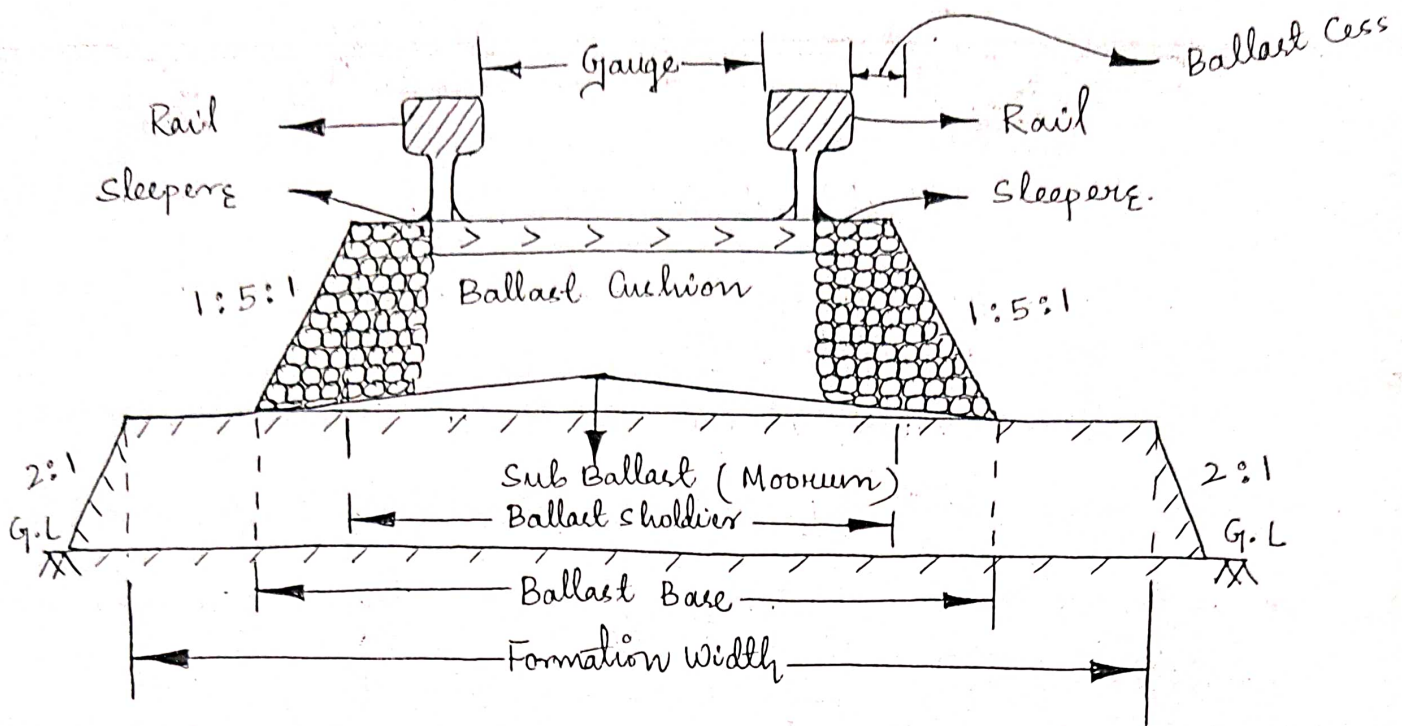 Ballast Cess
Gauge
Rail
Rail
Sleepers
Sleepers.
1:5:1
Ballast Cushion
1:5:1
2:1
Sub Ballast (Moorum)
2:1
Ballast Sholdier
G.L
G.L
Ballast Base
Formation Width